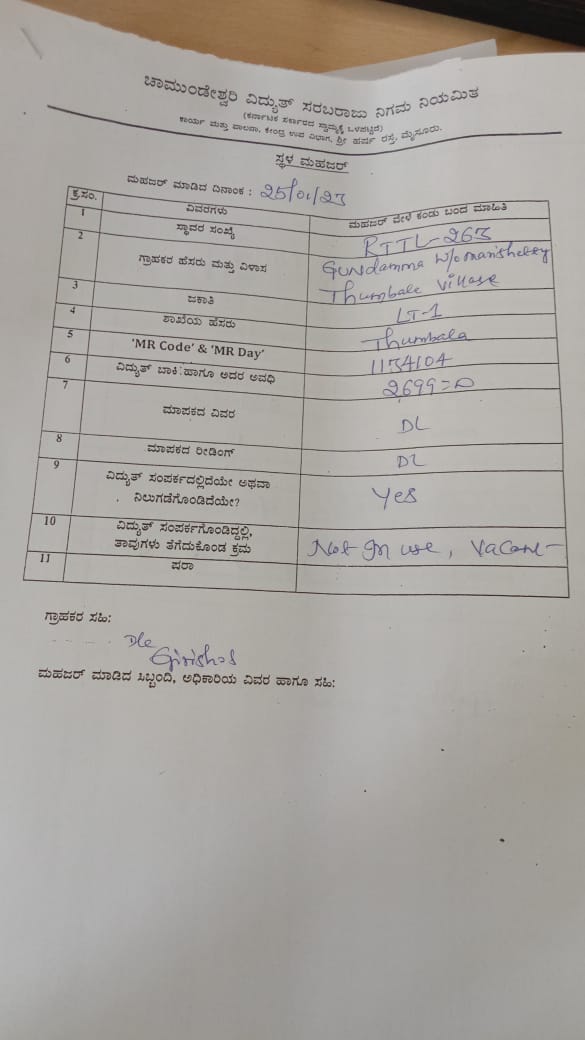 ಚಾಮುಂಡೇಶ್ವರಿ ವಿದ್ಯುತ್ ಸರಬರಾಜು ನಿಗಮ ನಿಯಮಿತ
(ಕರ್ನಾಟಕ ಸರ್ಕಾರದ ಸ್ವಾಮ್ಯಕ್ಕೆ ಒಳಪಟ್ಟಿದೆ)
ಕಾರ್ಯ ಮತ್ತು ಪಾಲನಾ, ಕೇಂದ್ರ ಉಪ ವಿಭಾಗ, ಶ್ರೀ ಹರ್ಷ ರಸ್ತೆ, ಮೈಸೂರು.
ಸ್ಥಳ ಮಹಜರ್
ಮಹಜರ್ ಮಾಡಿದ ದಿನಾಂಕ : 25/01/23
ಕ್ರ.ಸಂ. ವಿವರಗಳು ಮಹಜರ್ ವೇಳೆ ಕಂಡು ಬಂದ ಮಾಹಿತಿ
1 ಸ್ಥಾವರ ಸಂಖ್ಯೆ RTTL-263
2 ಗ್ರಾಹಕರ ಹೆಸರು ಮತ್ತು ವಿಳಾಸ Gundamma W/o
Thumbale Village
3 ಜಕಾತಿ LT-1
4 ಶಾಖೆಯ ಹೆಸರು Thumbala
5 'MR Code' & 'MR Day' 1134104
6 ವಿದ್ಯುತ್ ಬಾಕಿ ಹಾಗೂ ಅದರ ಅವಧಿ 2699=0
7 ಮಾಪಕದ ವಿವರ DL
8 ಮಾಪಕದ ರೀಡಿಂಗ್ DL
9 ವಿದ್ಯುತ್ ಸಂಪರ್ಕದಲ್ಲಿದೆಯೇ ಅಥವಾ
ನಿಲುಗಡೆಗೊಂಡಿದೆಯೇ? Yes
10 ವಿದ್ಯುತ್ ಸಂಪರ್ಕಗೊಂಡಿದ್ದಲ್ಲಿ,
ತಾವುಗಳು ತೆಗೆದುಕೊಂಡ ಕ್ರಮ Not In use, Vacant
11 ಷರಾ
ಗ್ರಾಹಕರ ಸಹಿ:
ಮಹಜರ್ ಮಾಡಿದ ಸಿಬ್ಬಂದಿ, ಅಧಿಕಾರಿಯ ವಿವರ ಹಾಗೂ ಸಹಿ: